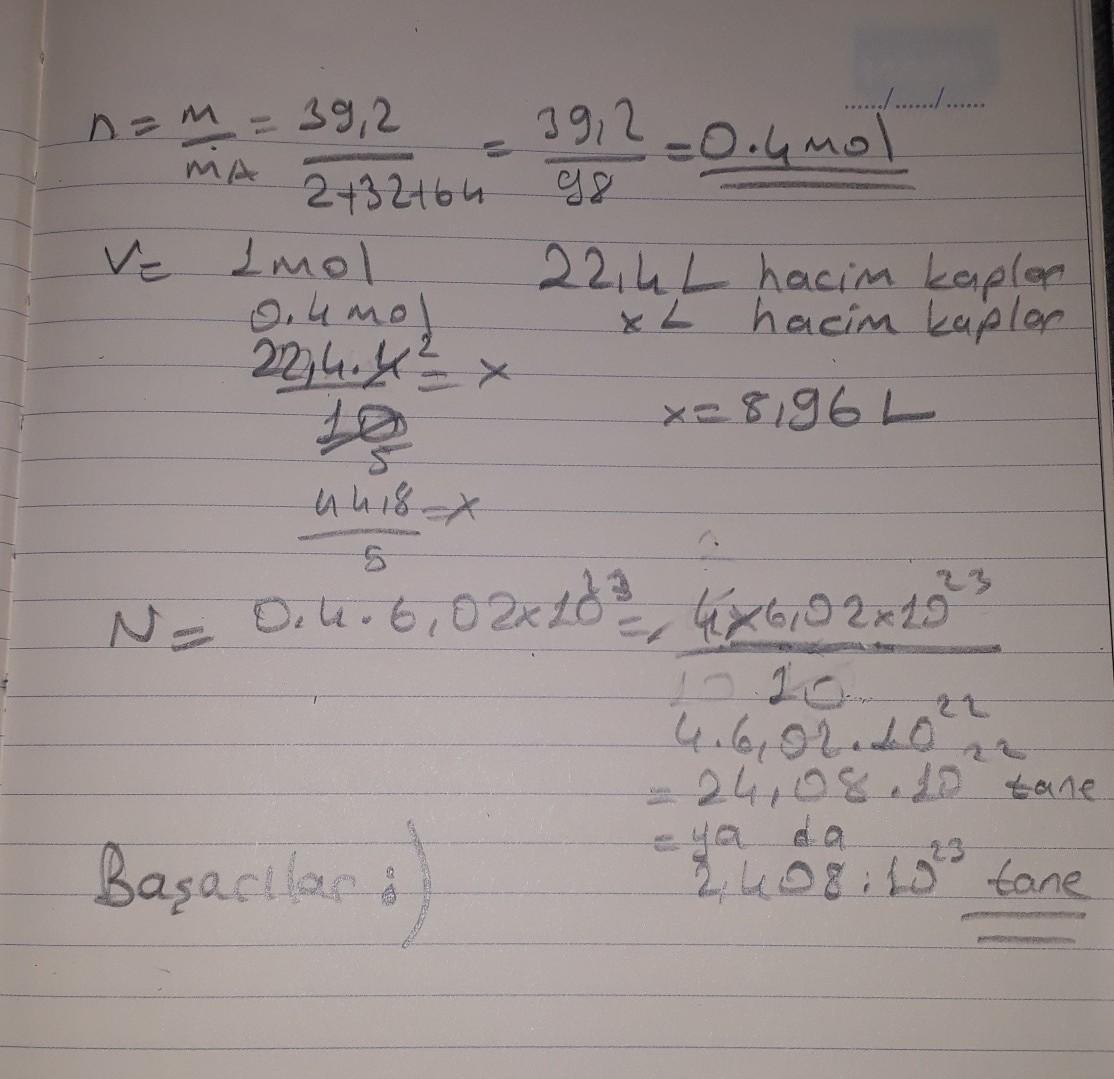 ....../....../......
n = m/mA = 39,2/2+32+64 = 39,2/98 = 0.4 mol
V= 1mol 22,4L hacim kaplar
0.4 mol x L hacim kaplar
22,4.4² = x
10
5
x = 8,96 L
44,8 = x
5
N = 0.4.6,02x10²³ = 4x6,02x10²³
10
4.6,02.10²²
= 24,08.10²² tane
= ya da
2,408.10²³ tane
Başarılar :)